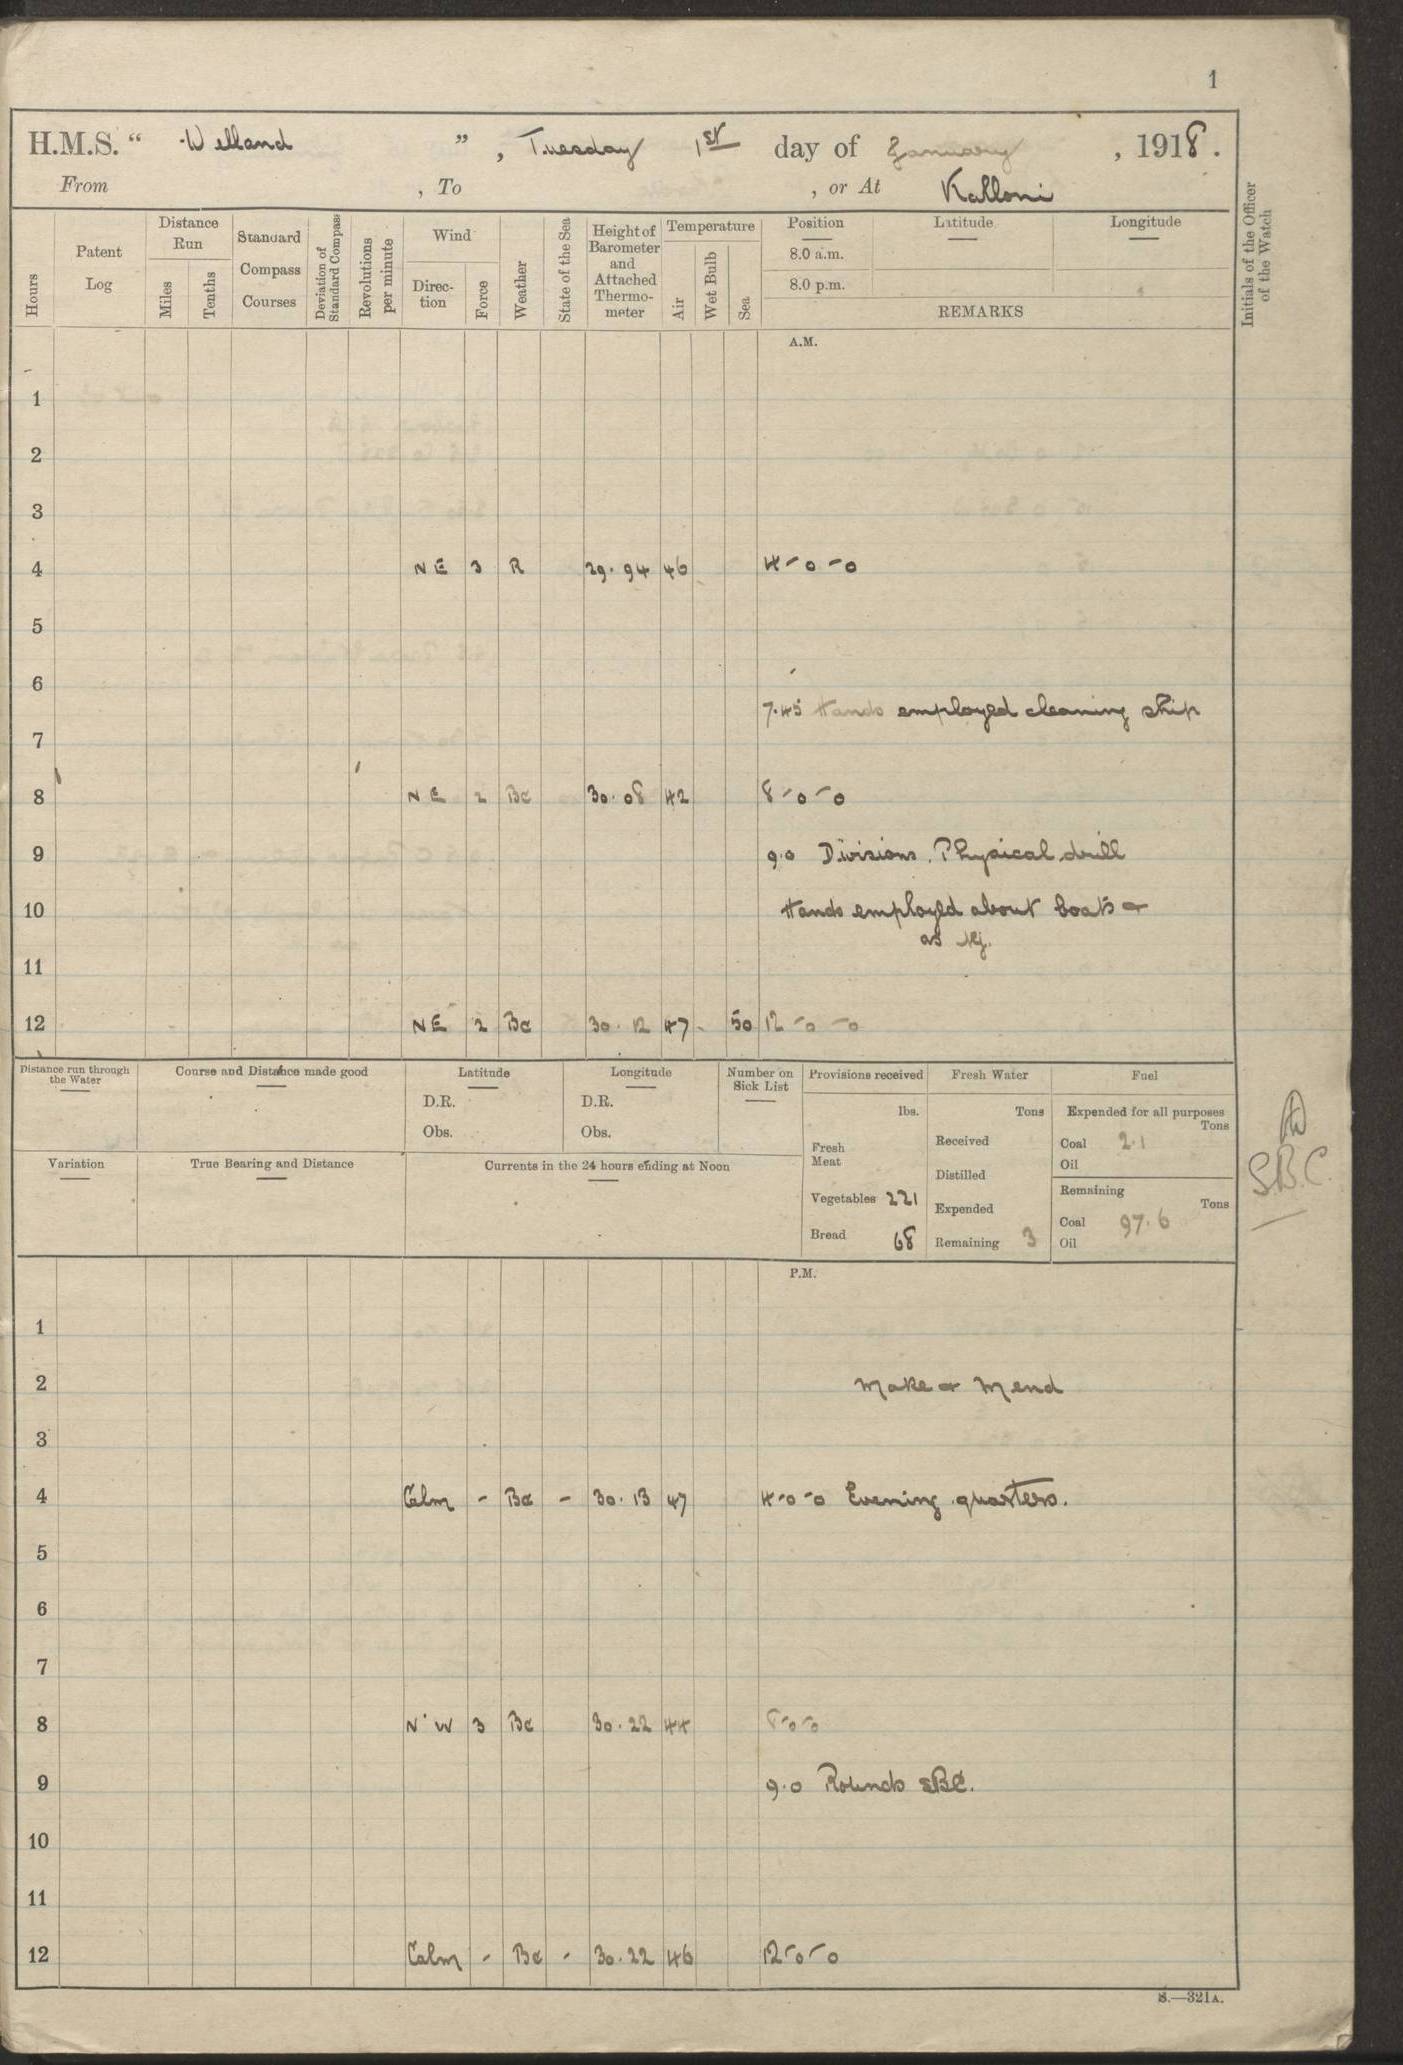 1
H.M.S. “ Welland ” , Tuesday 1st day of January , 1918.
From , To , or At Kalloni
Hours
Patent Log
Distance Run
Miles
Tenths
Standard Compass Courses
Deviation of Standard Compass
Revolutions per minute
Wind
Direc-tion
Force
Weather
State of the Sea
Height of Barometer and Attached Thermo-meter
Temperature
Air
Wet Bulb
Sea
Position Latitude Longitude
8.0 a.m.
8.0 p.m.
REMARKS
Initials of the Officer of the Watch
A.M.
1
2
3
4 NE 3 R 29.94 46 4-0-0
5
6
7.45 Hands employed cleaning ship
7
8 NE 2 Bc 30.08 42 8-0-0
9 9.0 Divisions. Physical drill
10 Hands employed about boats &
as
11
12 NE 2 Bc 30.12 47 50 12-0-0
Distance run through the Water
Course and Distance made good
Latitude
D.R.
Obs.
Longitude
D.R.
Obs.
Number on Sick List
Variation
True Bearing and Distance
Currents in the 24 hours ending at Noon
Provisions received
lbs.
Fresh Meat
Vegetables 221
Bread 68
Fresh Water
Tons
Received
Distilled
Expended
Remaining 3
Fuel
Expended for all purposes
Tons
Coal 2.1
Oil
Remaining
Tons
Coal 97.6
Oil
S.B.C.
P.M.
1
2 Make & Mend
3
4 Calm - Bc - 30.13 47 4-0-0 Evening quarters.
5
6
7
8 N'W 3 Bc 30.22 44 8-0-0
9 9.0 Rounds SBC.
10
11
12 Calm - Bc - 30.22 46 12-0-0
S.—321A.